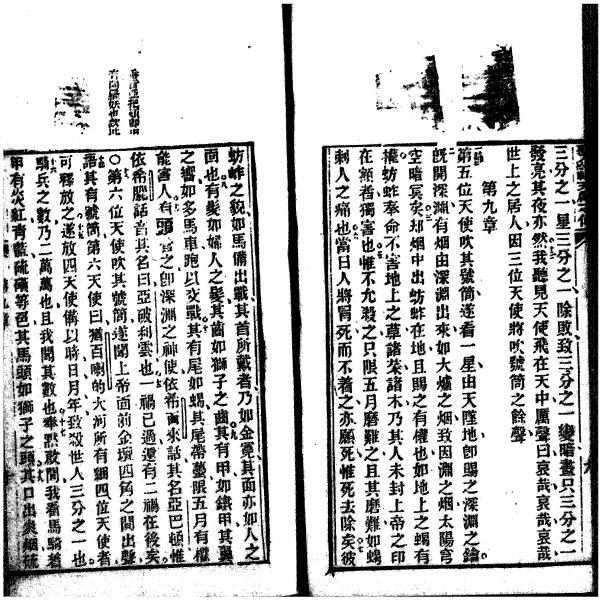 三分之一星三分之一除敗致三分之一變暗晝只三分之一
發亮其夜亦然我聽見天使飛在天中厲聲曰哀哉哀哉哀哉
世上之居人因三位天使將吹號筒之餘聲
第九章
第五位天使吹其號筒遂看一星由天墜地卽賜之深淵之鑰
旣開深淵有烟由深淵出來如大爐之烟致因淵之烟太陽穹
空暗冥矣却烟中出蚄蚱在地且賜之有權也如地上之蝎有
權蚄蚱奉命不害地上之草諸菜諸木乃其人未封上帝之印
在額者獨害也惟不允殺之只限五月磨難之且其磨難如蝎
刺人之痛也當日人將覓死而不着之亦願死惟死去除矣彼
蚄蚱之貌如馬備出戰其首所戴者乃如金冕其面亦如人之
面也有髮如婦人之髮其齒如獅子之齒其有甲如鐵甲其翼
之響如多馬車跑以交戰其有尾如蝎其尾帶蠆限五月有權
能害人有頭 之卽深淵之神使依希 來話其名亞巴頓惟
依希臘話音其名曰亞破利雲也一禍已過還有二禍在後矣
〇第六位天使吹其號筒遂聞上帝面前金壇四角之間出聲
語其有號筒第六天使曰猶百喇的大河所有綑四位天使者
可釋放之遂放四天使備以時日月年致殺世人三分之一也
騎兵之數乃二萬萬也且我聞其數也奉默啟間我看馬騎者
甲有炎紅青藍硫磺等色其馬頭如獅子之頭其口出炎烟硫